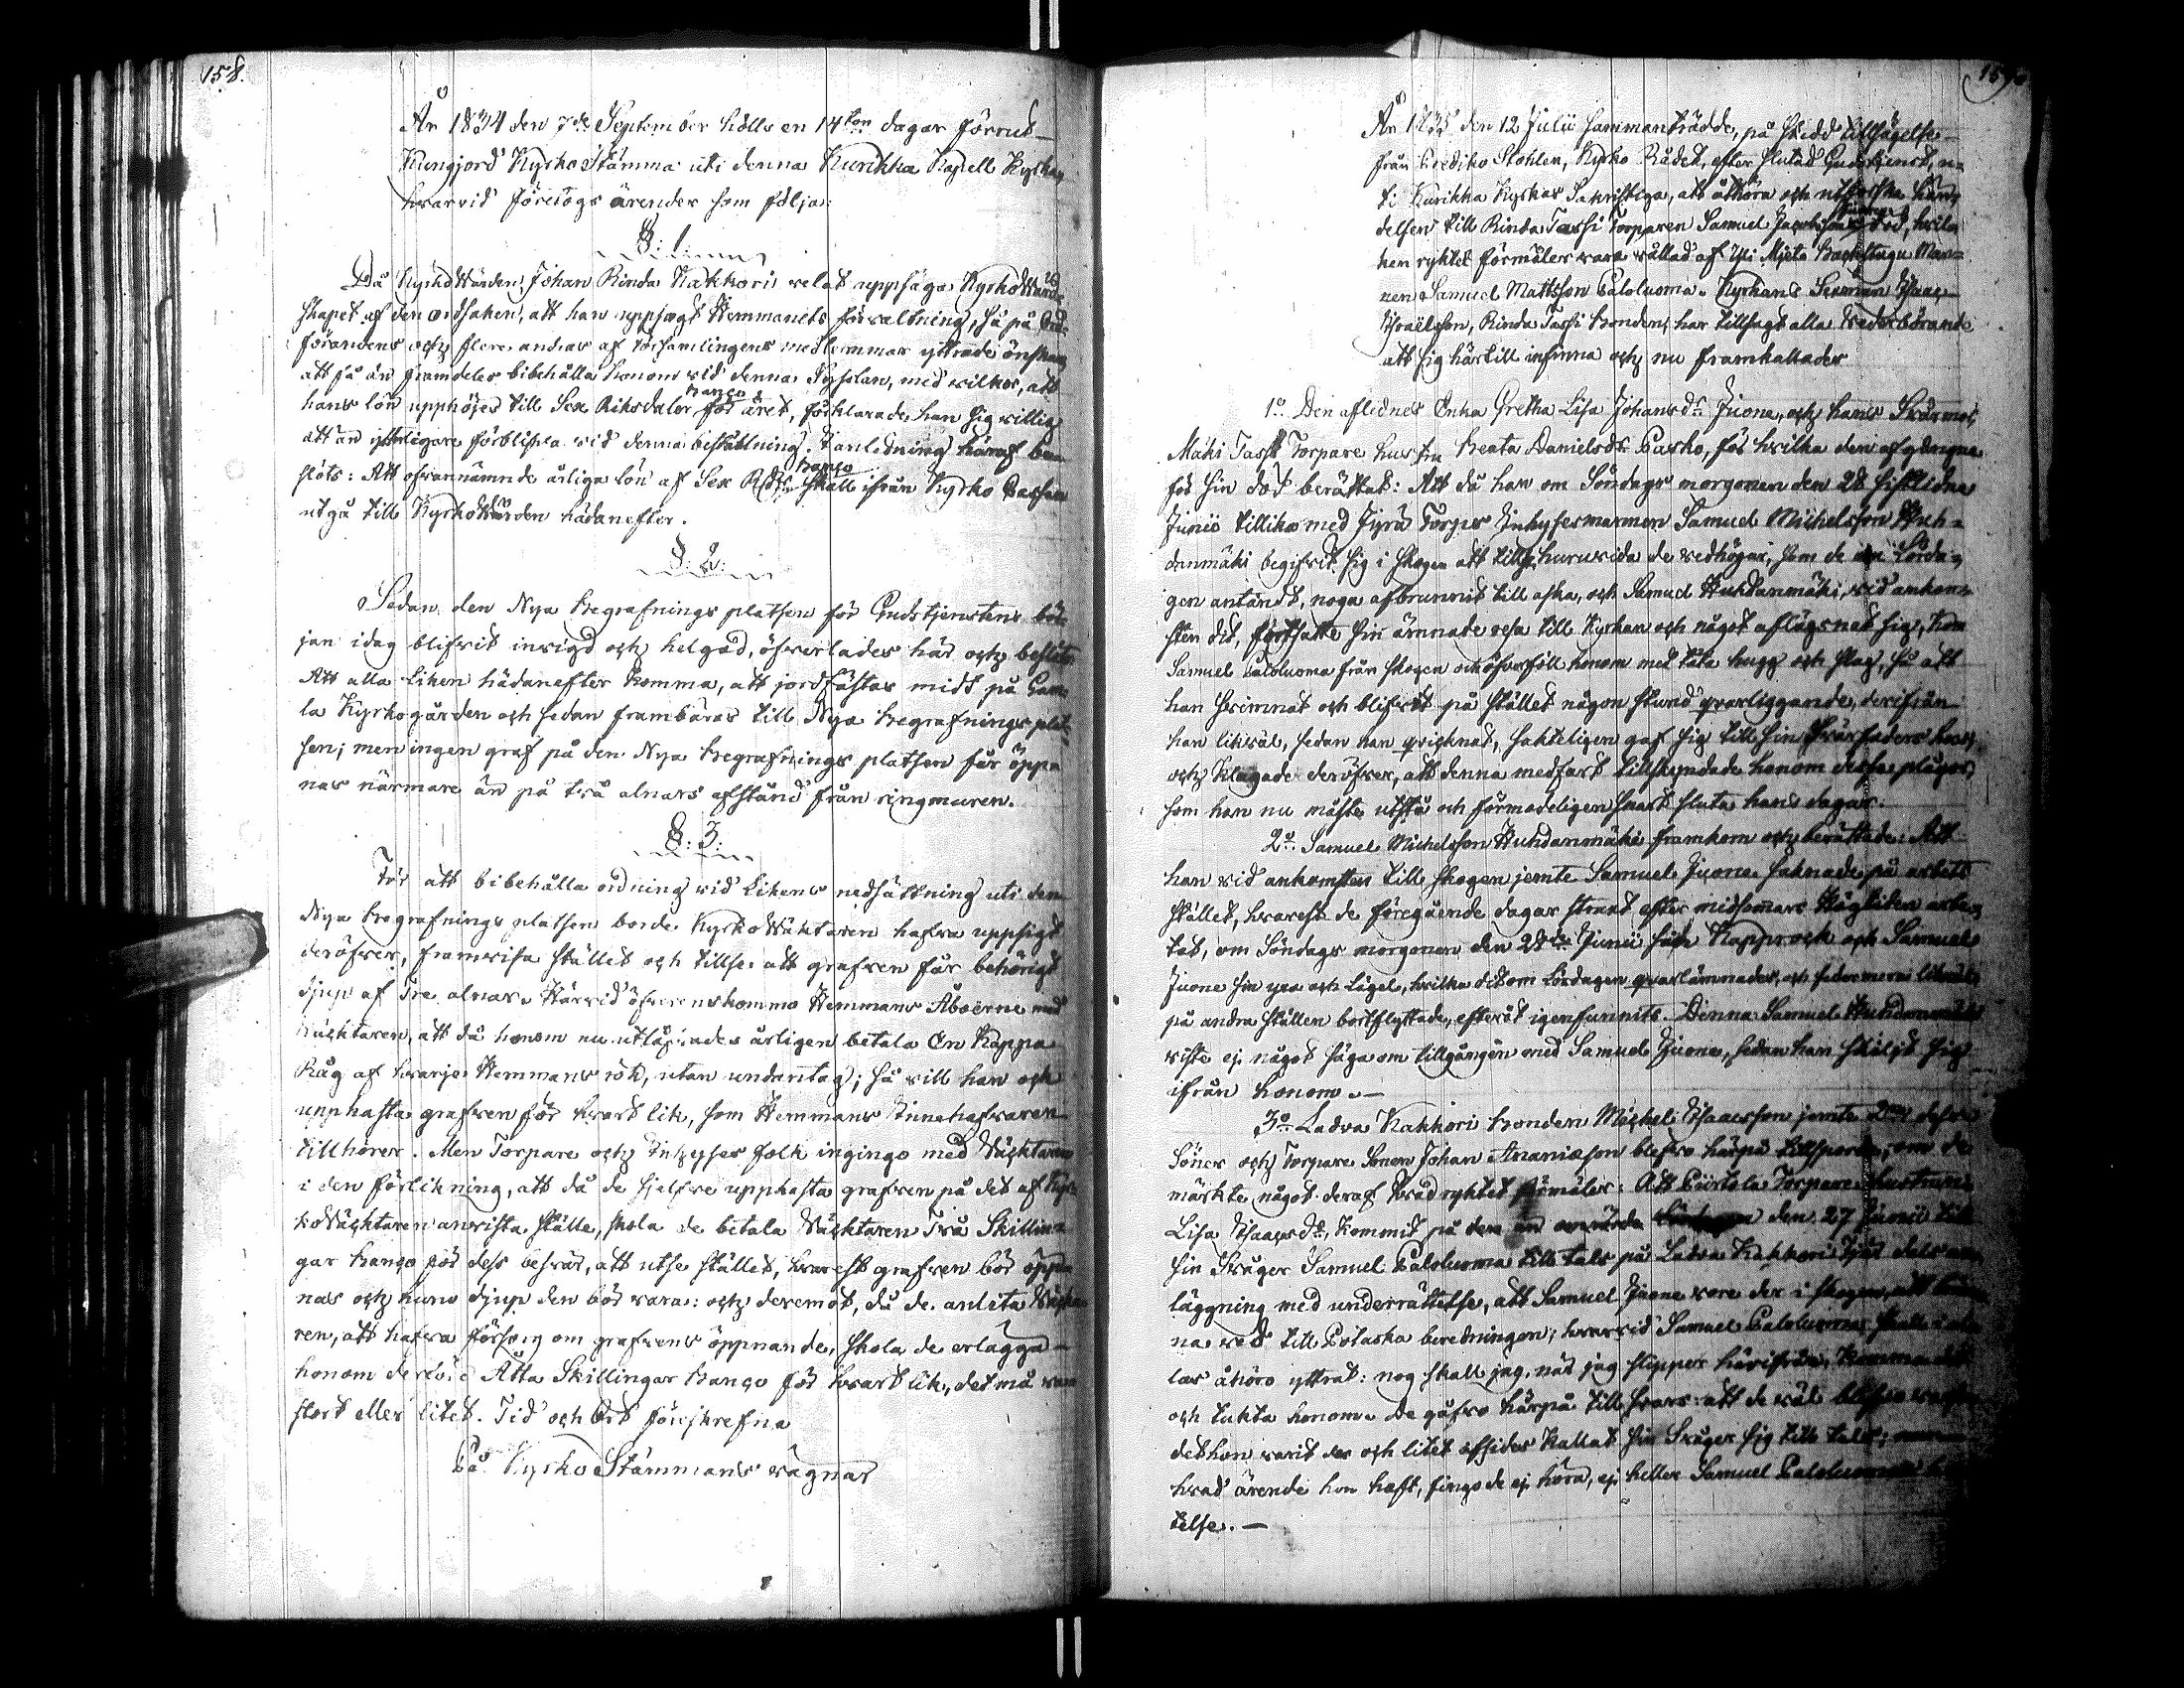 158.
År 1834 den 7de September hölls en 14ton dagar förrut
Kungjord Kyrko Stämma uti denna Kurikka Kapell Kyrka,
hvarvid företogs ärender som följa:
§: 1:
Då Kyrkovärden Johan Rinda Kakkori velat uppsäga Kyrkovärd-
skapet af den orsaken, att han uppsagt Hemmanets förvaltning, så på Ord-
förandens och flere andras af Församlingens medlemmar yttrade önskan
att få än framdeles bibehålla honom vid denna Sysslan, med vilkor, att
hans lön upphöjes till Sex Riksdaler Banco för året, förklarade han sig villig
att än ytterligare förblifva vid denna beställning. I anledning häraf be-
slöts: Att ofvannämnde årliga lön af Sex Rdr Banco skall ifrån Kyrko Cassan
utgå till Kyrkovärden hädanefter.
§: 2:
Sedan den Nya Begrafnings platsen för Gudstjenstens bör-
jan idag blifvit invigd och helgad, öfverlades här och beslöts
Att alla Liken hädanefter komma, att jordfästas midt på Gam-
la Kyrkogården och sedan frambäras till Nya Begrafnings plat-
sen; men ingen graf på den Nya Begrafnings platsen får öppe
nas närmare än på två alnars afstånd från ringmuren.
§: 3:
För att bibehålla ordning vid Likens nedsättning uti den
Nya Begrafnings platsen borde Kyrkoväktaren hafva uppsigt
deröfver, framvisa stället och tillse att grafven får behörigt
djup af Tre alnar. Härvid öfverenskommo Hemmans Åboerne med
Väktaren, att då honom nu utlåfvades årligen betala En Kappa
Råg af hvarje Hemmans rök, utan undantag; så vill han och
upphasta grafven för hvart lik, som Hemmans Innehafvaren
tillhörer. Men Torpare och Inhyses folk ingingo med Väktaren
i den förlikning, att då de sjelfve upphasta grafven på det af Kyr-
koväktaren anvista ställe, skola de betala Väktaren Två Skillin-
gar Banco för dess besvär, att utse stället, hvarest grafven bör öppe
nas och huru djup den bör vara: och deremot, då de anlita Väkta
ren, att hafva försorg om grafvens öppnande, skola de erlägga
honom derföre Åtta Skillingar Banco för hvart lik, det må vara
stort eller litet. Tid och Ort förskrefna
På Kyrko Stämmans vägnar
159.
År 1835 den 12 Julii sammanträdde, på skedd tillsägelse
från Prediko Stolen, Kyrko Rådet, efter slutad Gudstjenst, u-
ti Kurikka Kyrkas Sakristiga, att åhöra och utforska hän-
delsen till Rinda Tassi Torparen Samuel Jacobsson Juones död, hvil-
ken ryktet förmäler vara vållad af Yli Mieto Backstugu Man-
nen Samuel Mattsson Paloluoma. Kyrkans Sexman Isaac
Israelsson, Rinda Tassi Bonden, har tillsagt alla Vederbörande
att sig härtill infinna och nu framkallades
1o Den aflidnes Enka Gretha Lisa Johansdr Juone, och hans Svärmor,
Mäki Tassi Torpare hustru Beata Danielsdr Pasko, för hvilka den afgångne
för sin död berättat: Att då han om Söndags morgonen den 28 sistlidne
Junii tillika med Jyrä Torpas Inhysesmannen Samuel Michelsson Huh-
danmäki begifvit sig i skogen att tillse, huruvida de vedhögar, som de om Lörda-
gen antändt, noga afbrunnit till aska, och Samuel Huhdanmäki, vid ankom-
sten dit, fortsatte sin ämnade resa till Kyrkan och något aflägsnat sig, kom
Samuel Paloluoma från skogen och öfverföll honom med täta hugg och slag, så att
han svimnat och blifvit på stället någon stund qvarliggande, derifrån
han likväl, sedan han qvicknat, sakteligen gaf sig till sin Svärfaders hus,
och klagade deröfver, att denna medfart tillskyndade honom dessa plågor,
som han nu måste utstå och förmodeligen snart sluta hans dagar.
2o Samuel Michelsson Huhdanmäki framkom och berättade: Att
han vid ankomsten till skogen jemte Samuel Juone saknade på arbets
stället, hvarest de föregående dagar straxt efter midsommars Högtiden arbe-
tat, om Söndags morgonen den 28de Junii sin Kapprock och Samuel
Juone sin yxa och Lägel, hvilka dit om Lördagen qvarlämnades, och sedermera likväl
på andra ställen bortflyttade, efteråt igenfunnits. Denna Samuel Huhdanmäki
viste ej något säga om tillgången med Samuel Juone, sedan han skiljt sig
ifrån honom. —
3o Ladva Kakkori Bonden Michel Isaacsson jemte 2ne desse
Söner och Torpare Sonen Johan Ananiæson blefvo härpå tillsporde, om de
märkte något deraf hvad ryktet förmäler: Att Piirtola Torpare Hustrun
Lisa Isaacsdr, kommit på den den 27 Junii till
sin Svåger Samuel Paloluoma till tals på Ladva Kakkori
läggning med underrättelse, att Samuel Juone vore der i skogen, att
na ved till Potaska beredningen; hvarvid Samuel Paloluoma skall i
las åhöro yttrat: nog skall jag, när jag slipper härifrån, komma dit
och tukta honom. De gåfvo härpå till svar: att de väl blefvo varse
det hon varit der och litet afsides kallat sin Svåger sig till tals; men
hvad ärende hon haft, fingo de ej höra, ej heller Samuel Paloluomas
telse. —